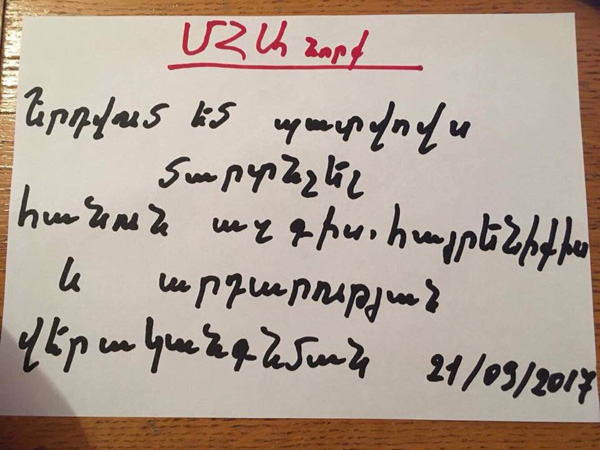 ՄՀԱ նորք
Երդվում եմ պատվովս
մարտնչել
հանուն ազգիս, հայրենիքիս
և արդարության
վերականգնման 21/09/2017